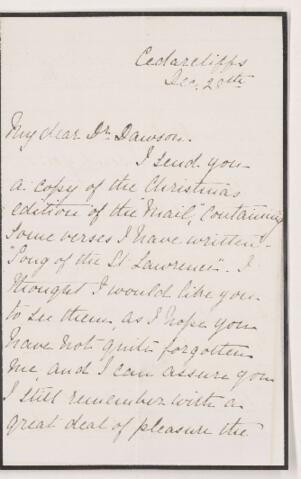 Cedarcliffs
Dec. 20th
My dear Dr. Dawson.
I send you
a copy of the Christmas
edition of the "Mail", containing
some verses I have written -
"Song of the St. Lawrence". I
thought I would like you
to see them, as I hope you
have not quite forgotten
me, and I can assure you
I still remember with a
great deal of pleasure the